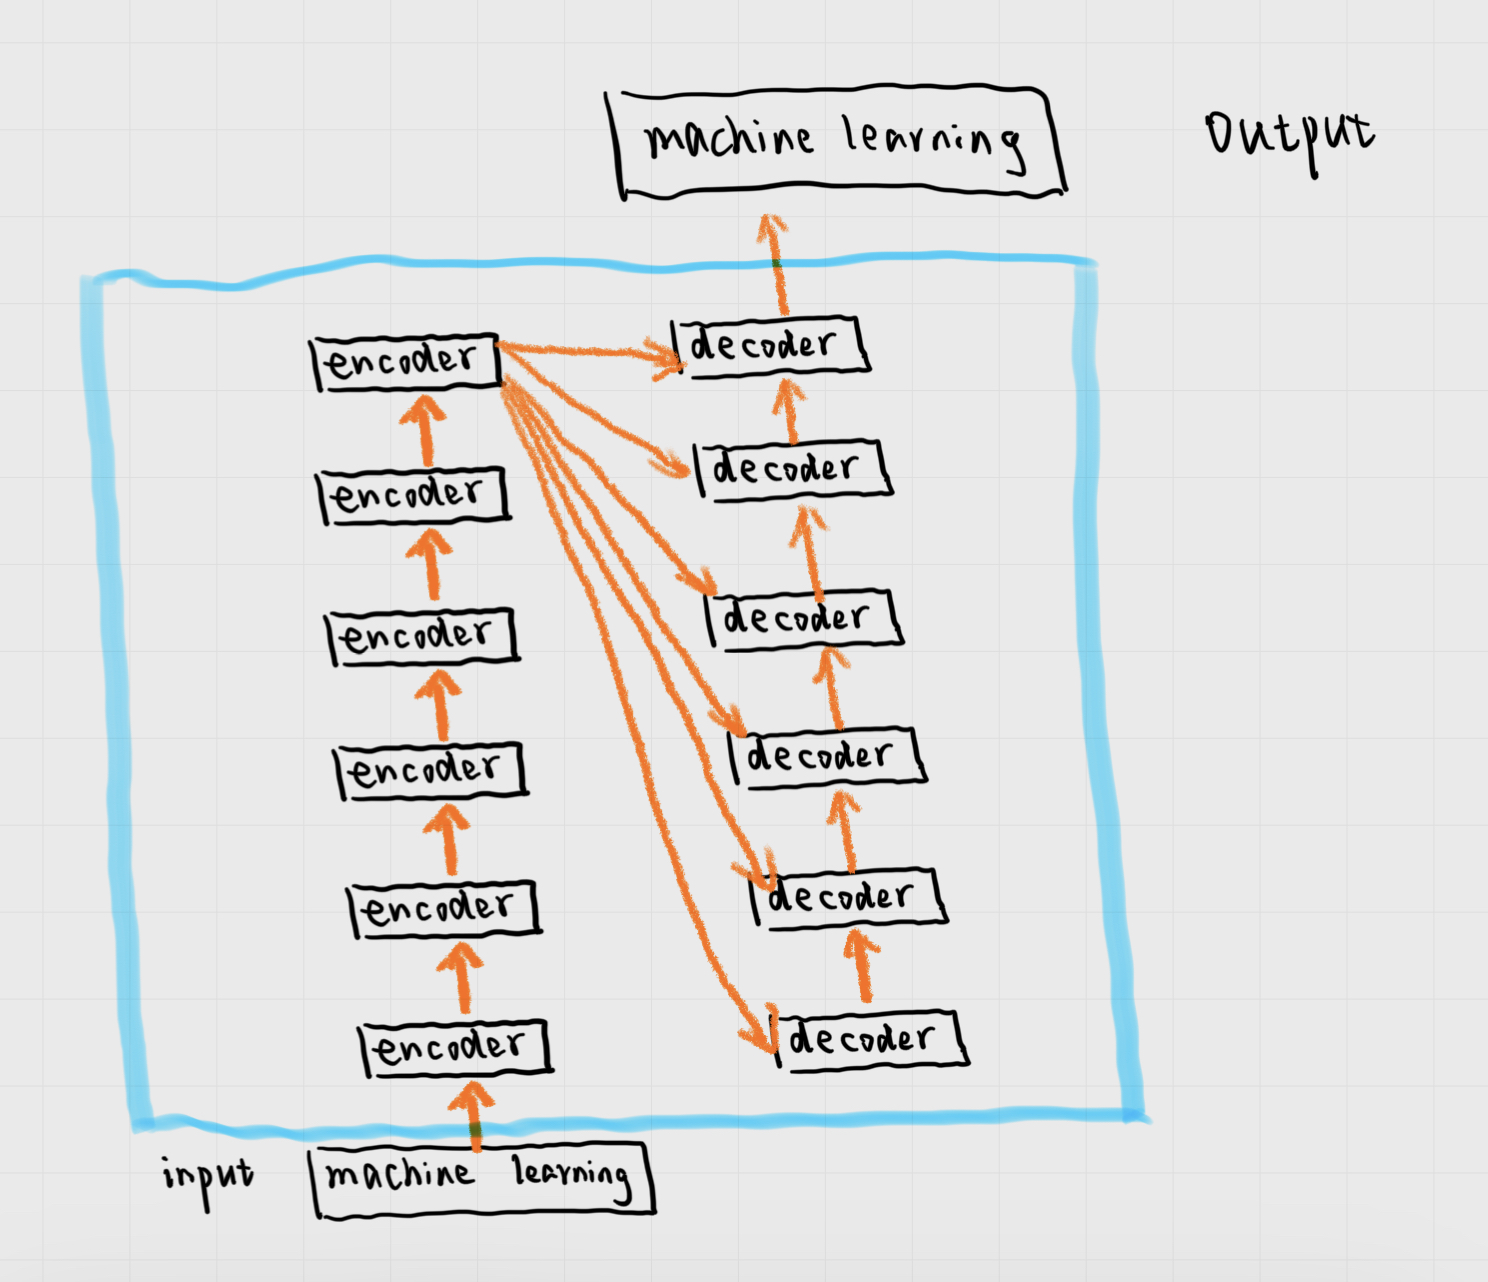 machine learning
Output
encoder
decoder
encoder
decoder
encoder
decoder
encoder
decoder
encoder
decoder
encoder
decoder
input
machine learning